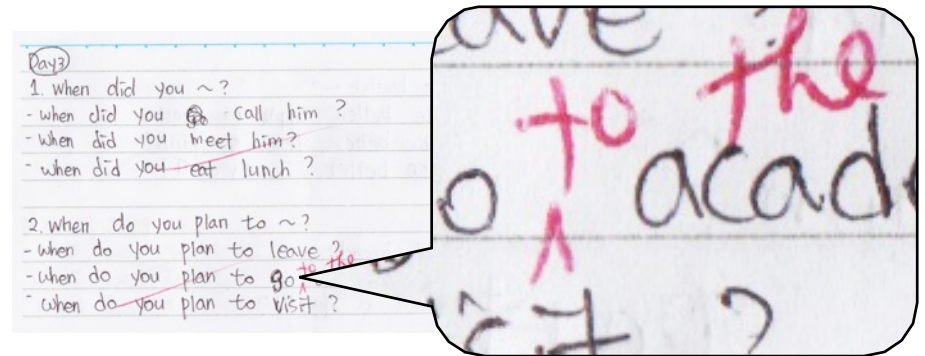 Day3
1. When did you ~?
- when did you call him ?
- When did you meet him?
- when did you eat lunch ?
2. when do you plan to ~?
- when do you plan to leave ?
- when do you plan to go to the
- when do you plan to visit ?
ave ?
to the
o acad
isit ?